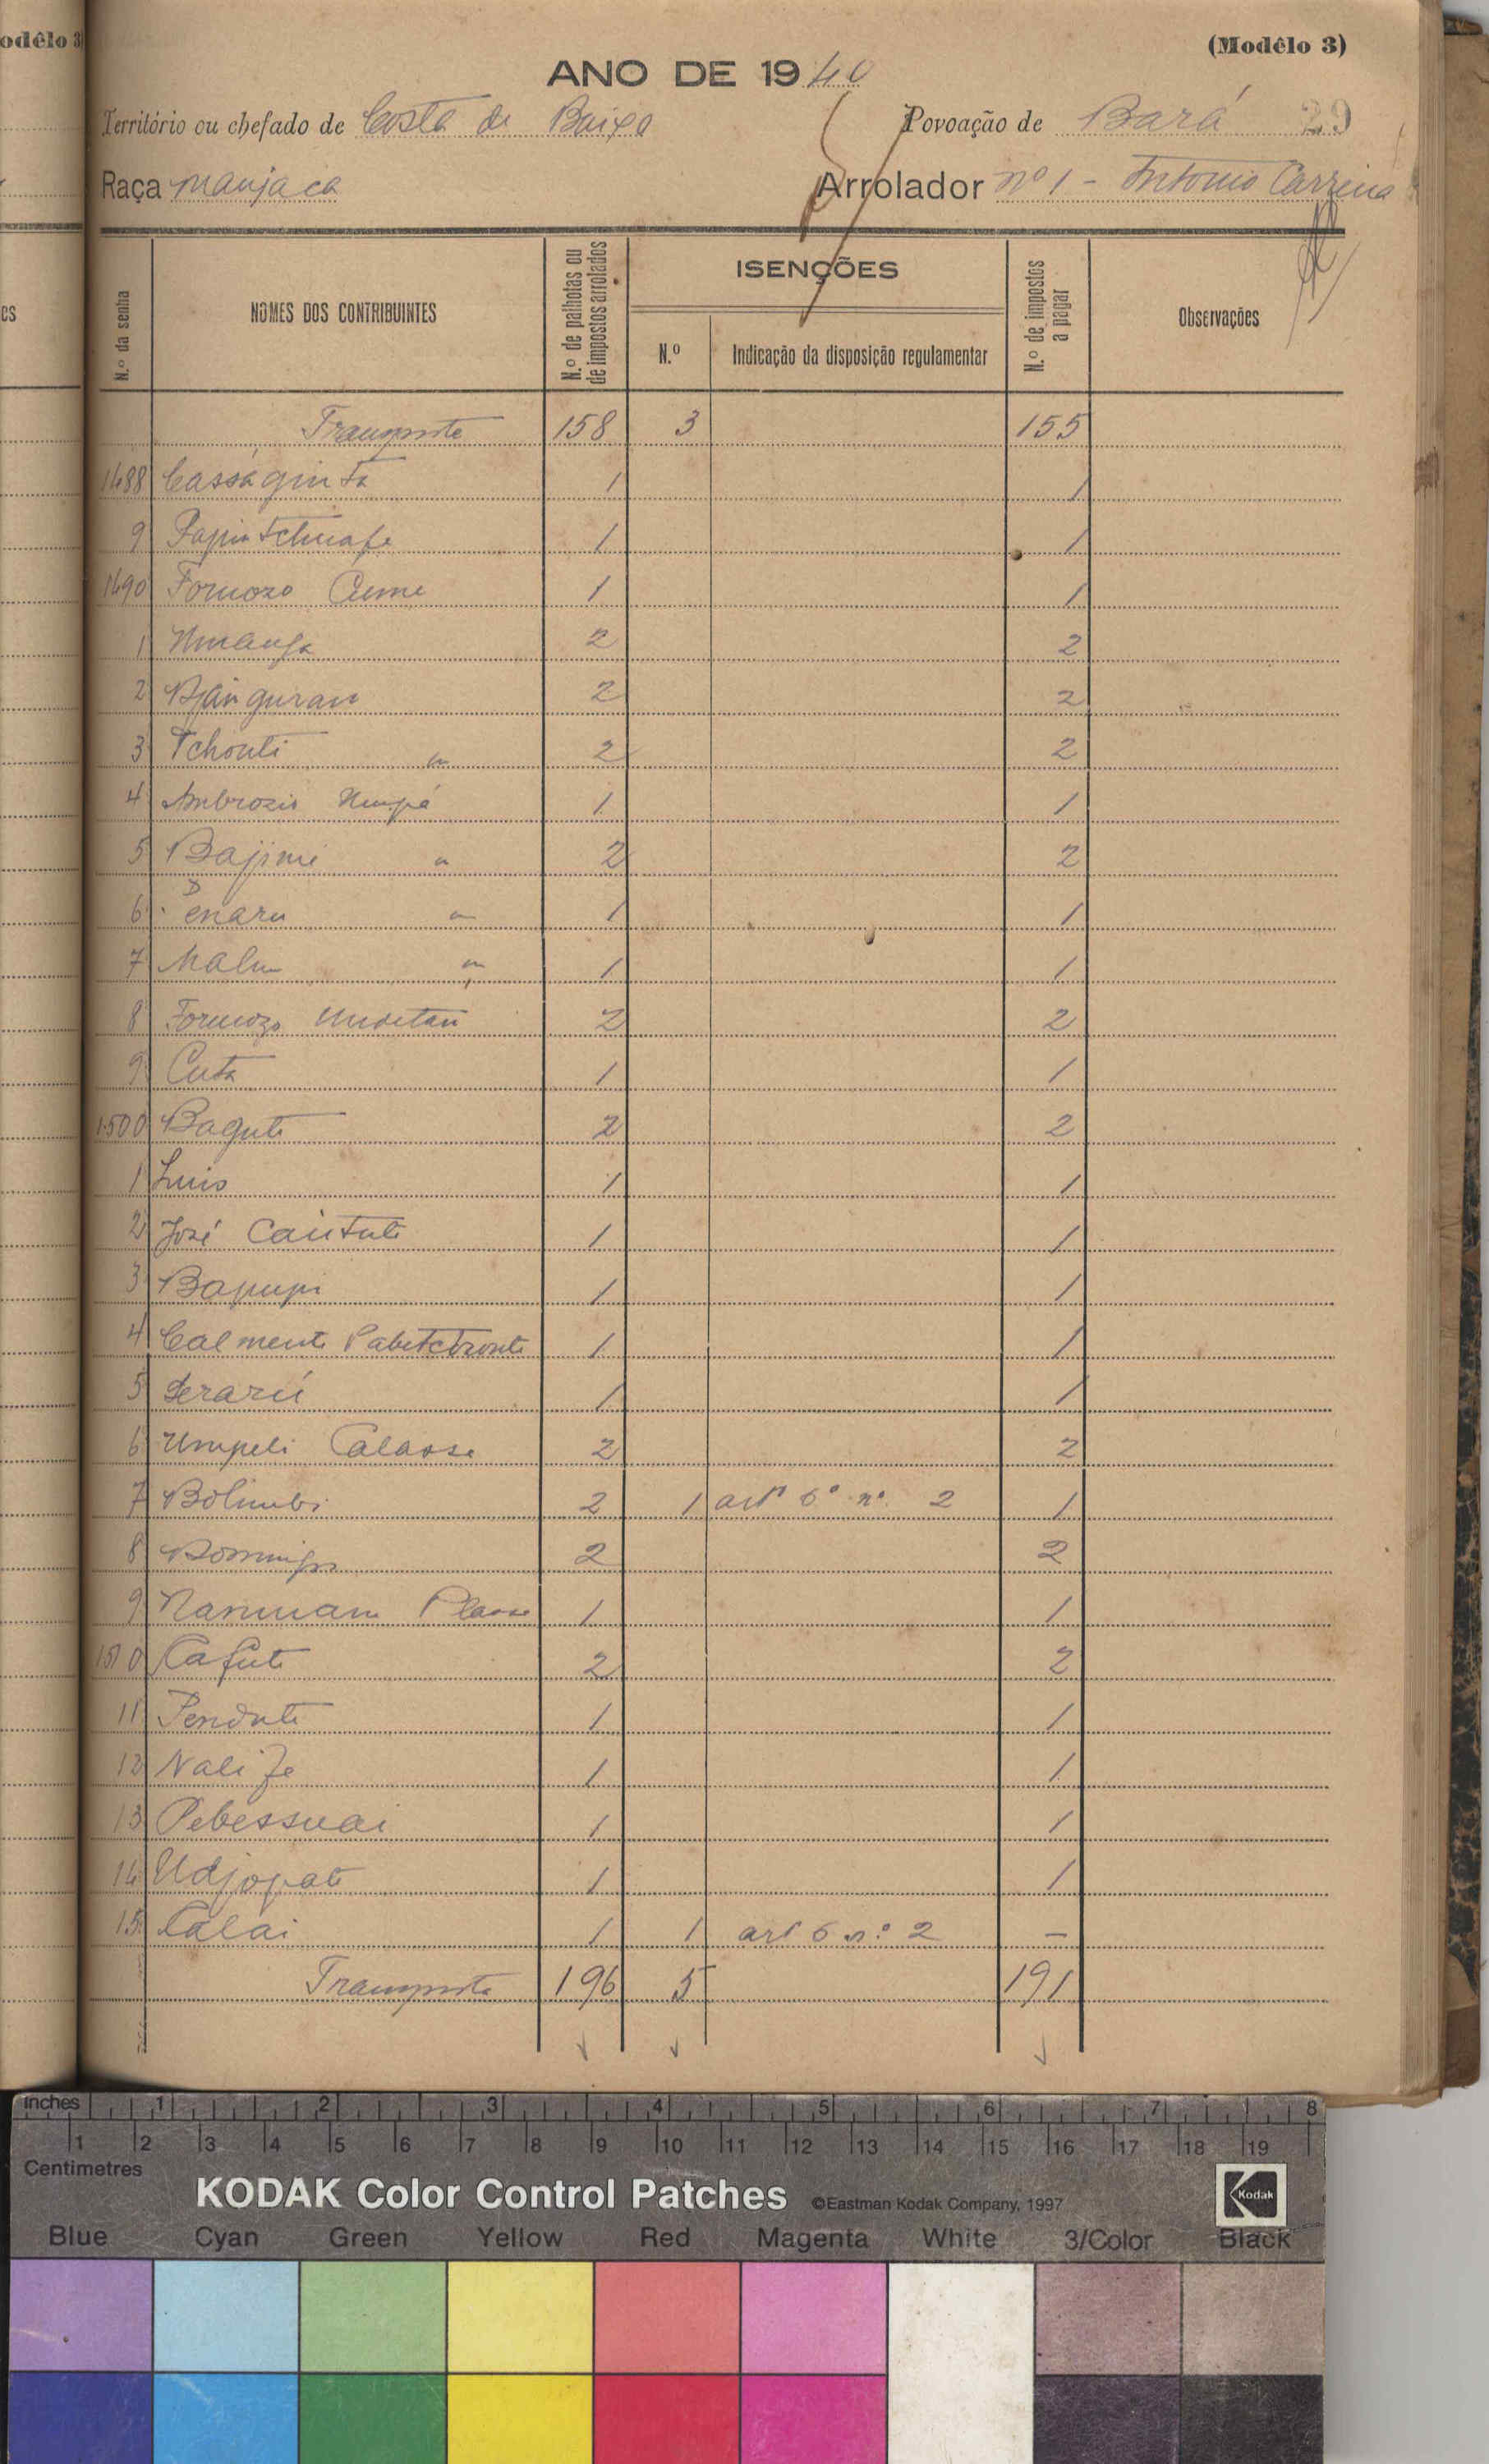 odêlo 3
es
(Modêlo 3)
ANO DE 1940
Território ou chefado de Costa de Baixo
Povoação de Bará 29
Raça manjaca
Arrolador nº 1 - Antonio Carreira
N.º da senha
NOMES DOS CONTRIBUINTES
N.º de palhotas ou de impostos arrolados
ISENÇÕES
N.º
Indicação da disposição regulamentar
N.º de impostos a pagar
Observações
Transporte 158 3 155
1488 Casságinta 1 1
9 1 1
1490 Formozo Cume 1 1
1 Umanga 2 2
2 2 2
3 Tchonti " 2 2
4 Ambrozio Umpá 1 1
5 Bajimi " 2 2
6 " 1 1
7 Malu " 1 1
8 Formozo 2 2
9 Cuta 1 1
1500 Baguti 2 2
1 Luis 1 1
2 José Cantuti 1 1
3 Bapupi 1 1
4 Calmenti 1 1
5 1 1
6 Umpeli Calasse 2 2
7 Bolimbi 2 1 artº 6º nº 2 1
8 Domingos 2 2
9 1 1
1510 Cafuti 2 2
11 Penduti 1 1
12 Nalife 1 1
13 Pebessuai 1 1
14 Udjopati 1 1
15 Calai 1 1 art 6 nº 2 —
Transporte 196 5 191
inches 1 2 3 4 5 6 7 8
1 2 3 4 5 6 7 8 9 10 11 12 13 14 15 16 17 18 19
Centimetres
KODAK Color Control Patches ©Eastman Kodak Company, 1997 Kodak
Blue Cyan Green Yellow Red Magenta White 3/Color Black